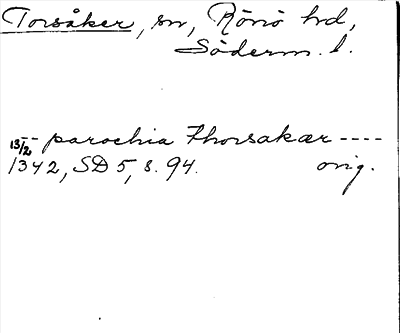 Torsåker, sn, Rönö hd,
Söderm. l.
13/2 -- parochia Thorsakær ----
1342, SD 5, s. 94. orig.